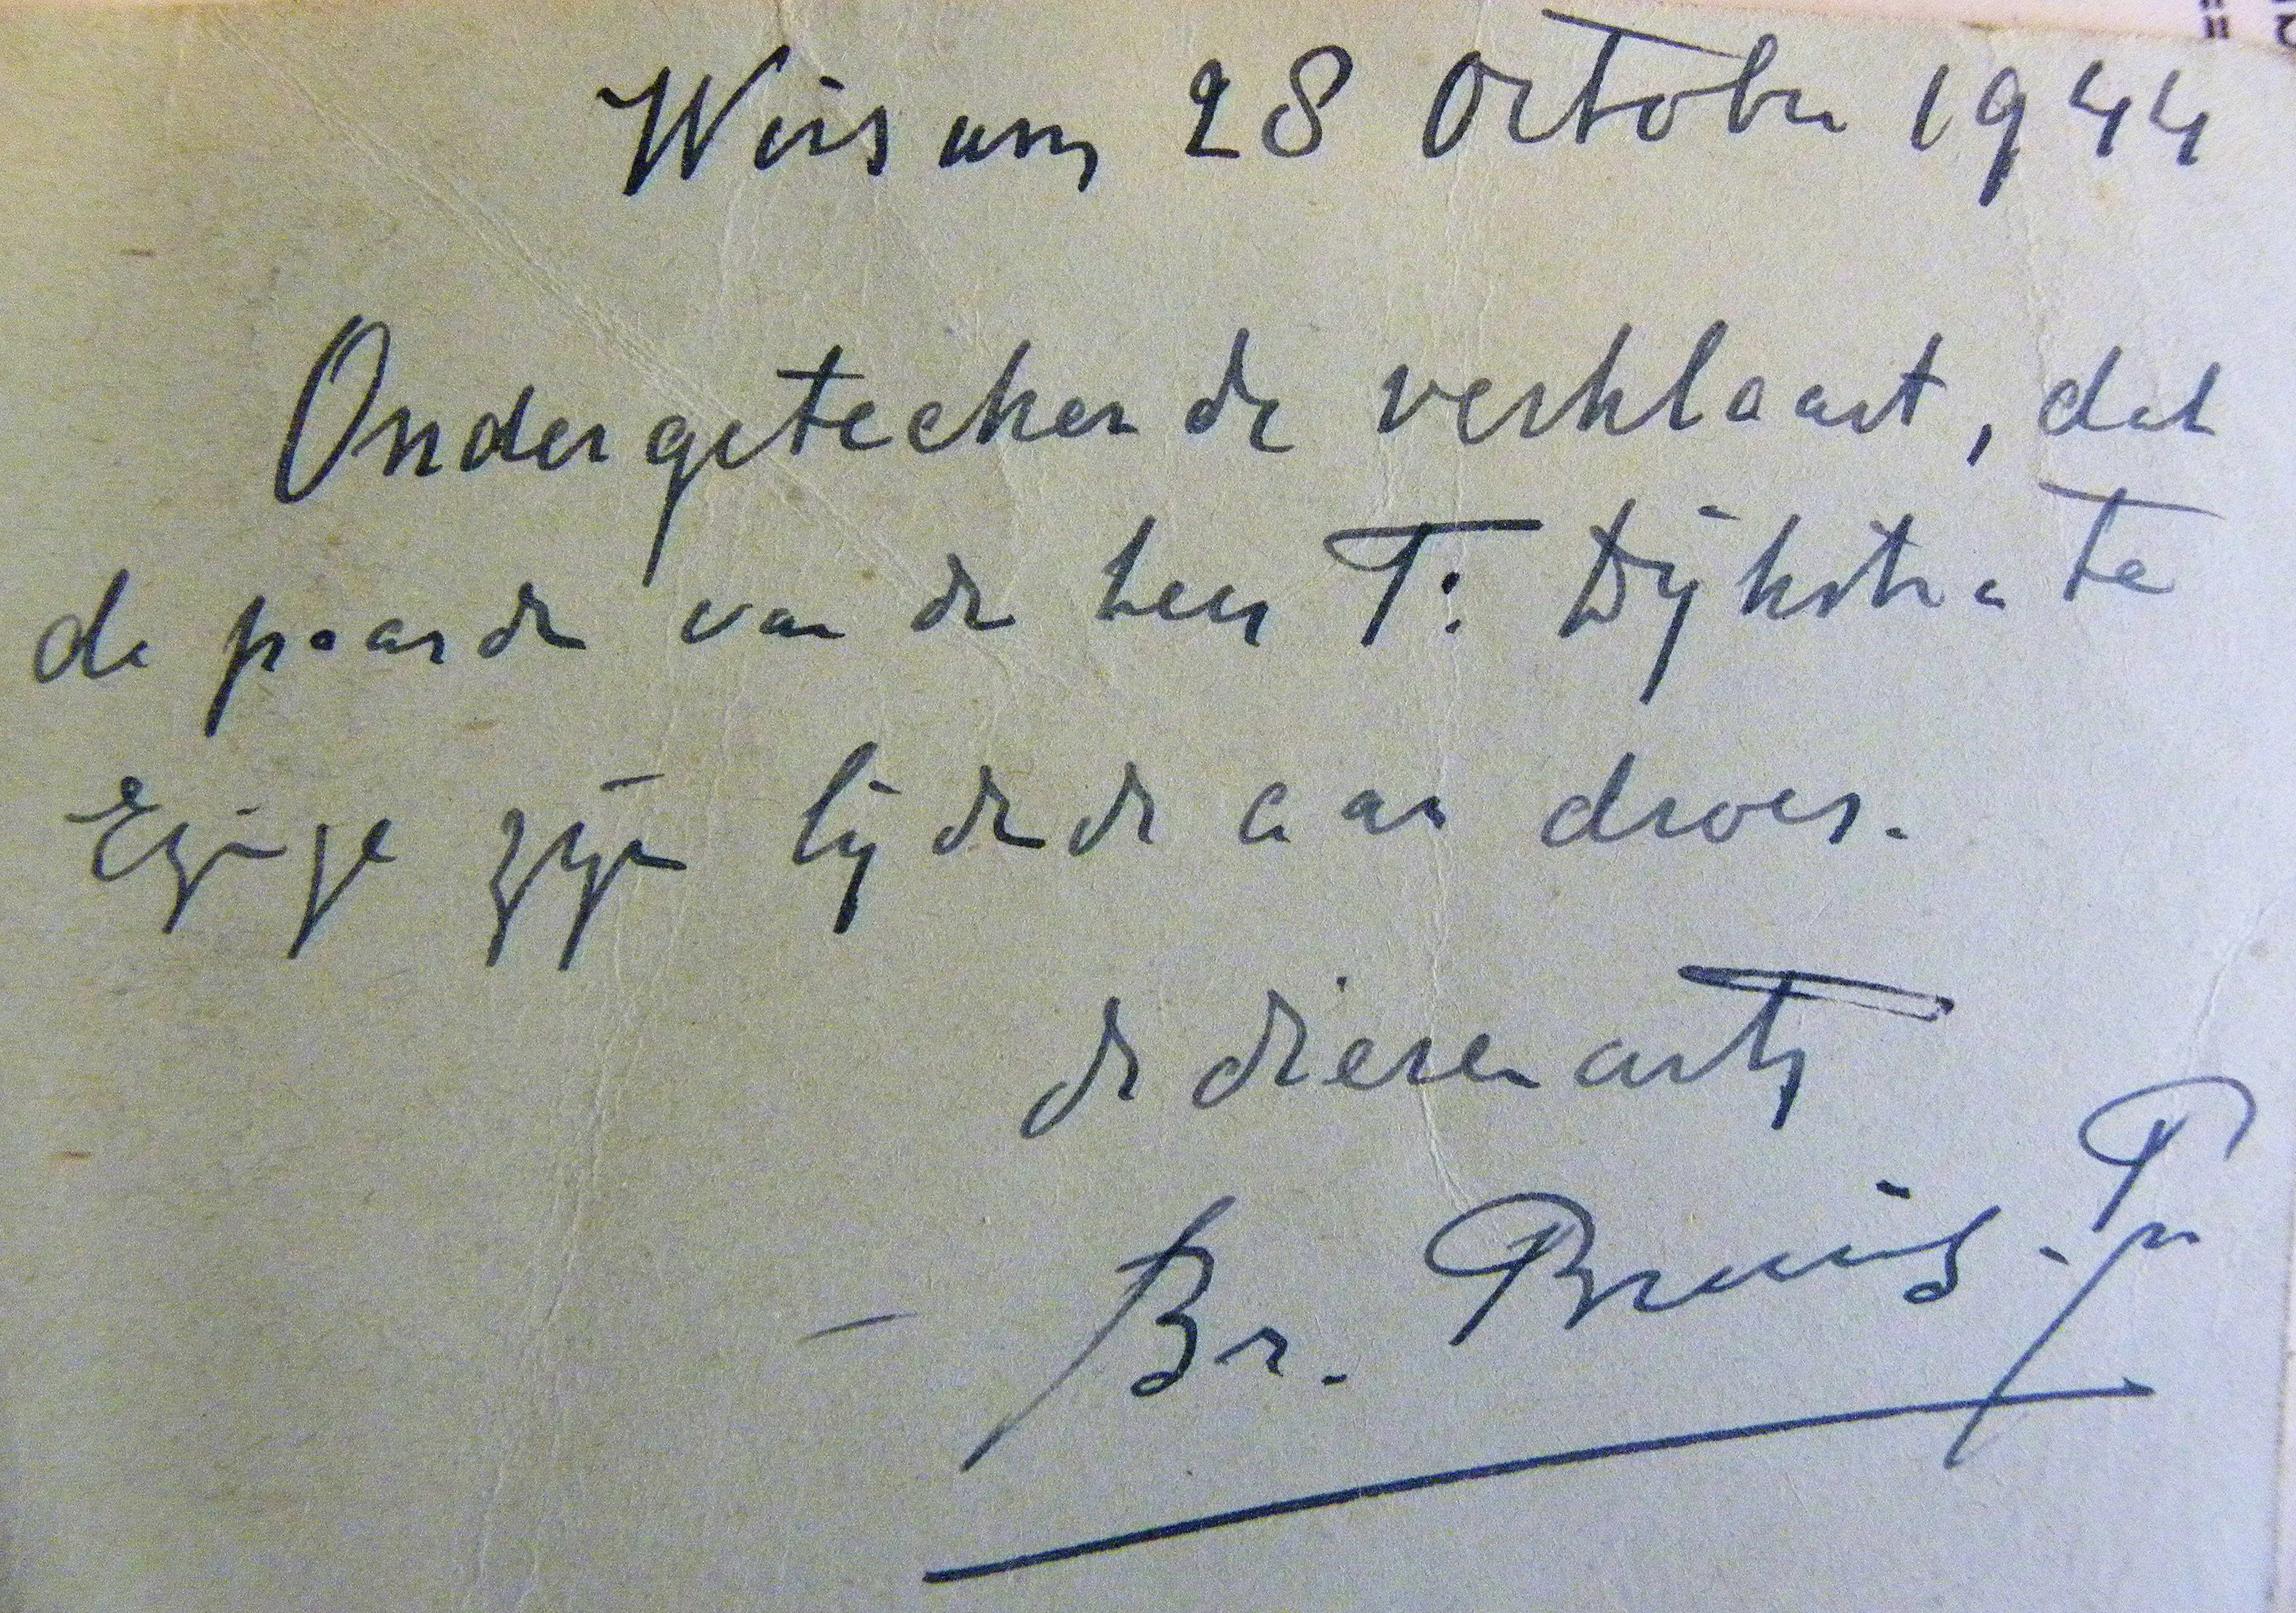 Winsum 28 October 1944
Ondergeteekende verklaart, dat
de paarden van den heer T. Dijkstra te
Ezinge zijn lijdende aan droes.
de dierenarts
Br. Bruins